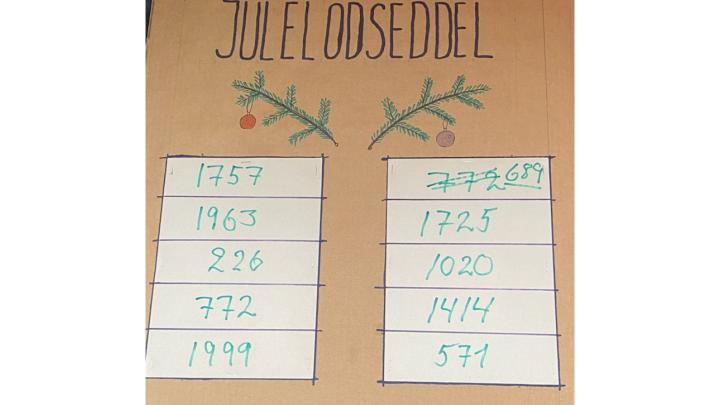 JULELODSEDDEL
1757
1963
226
772
1999
772 689
1725
1020
1414
571